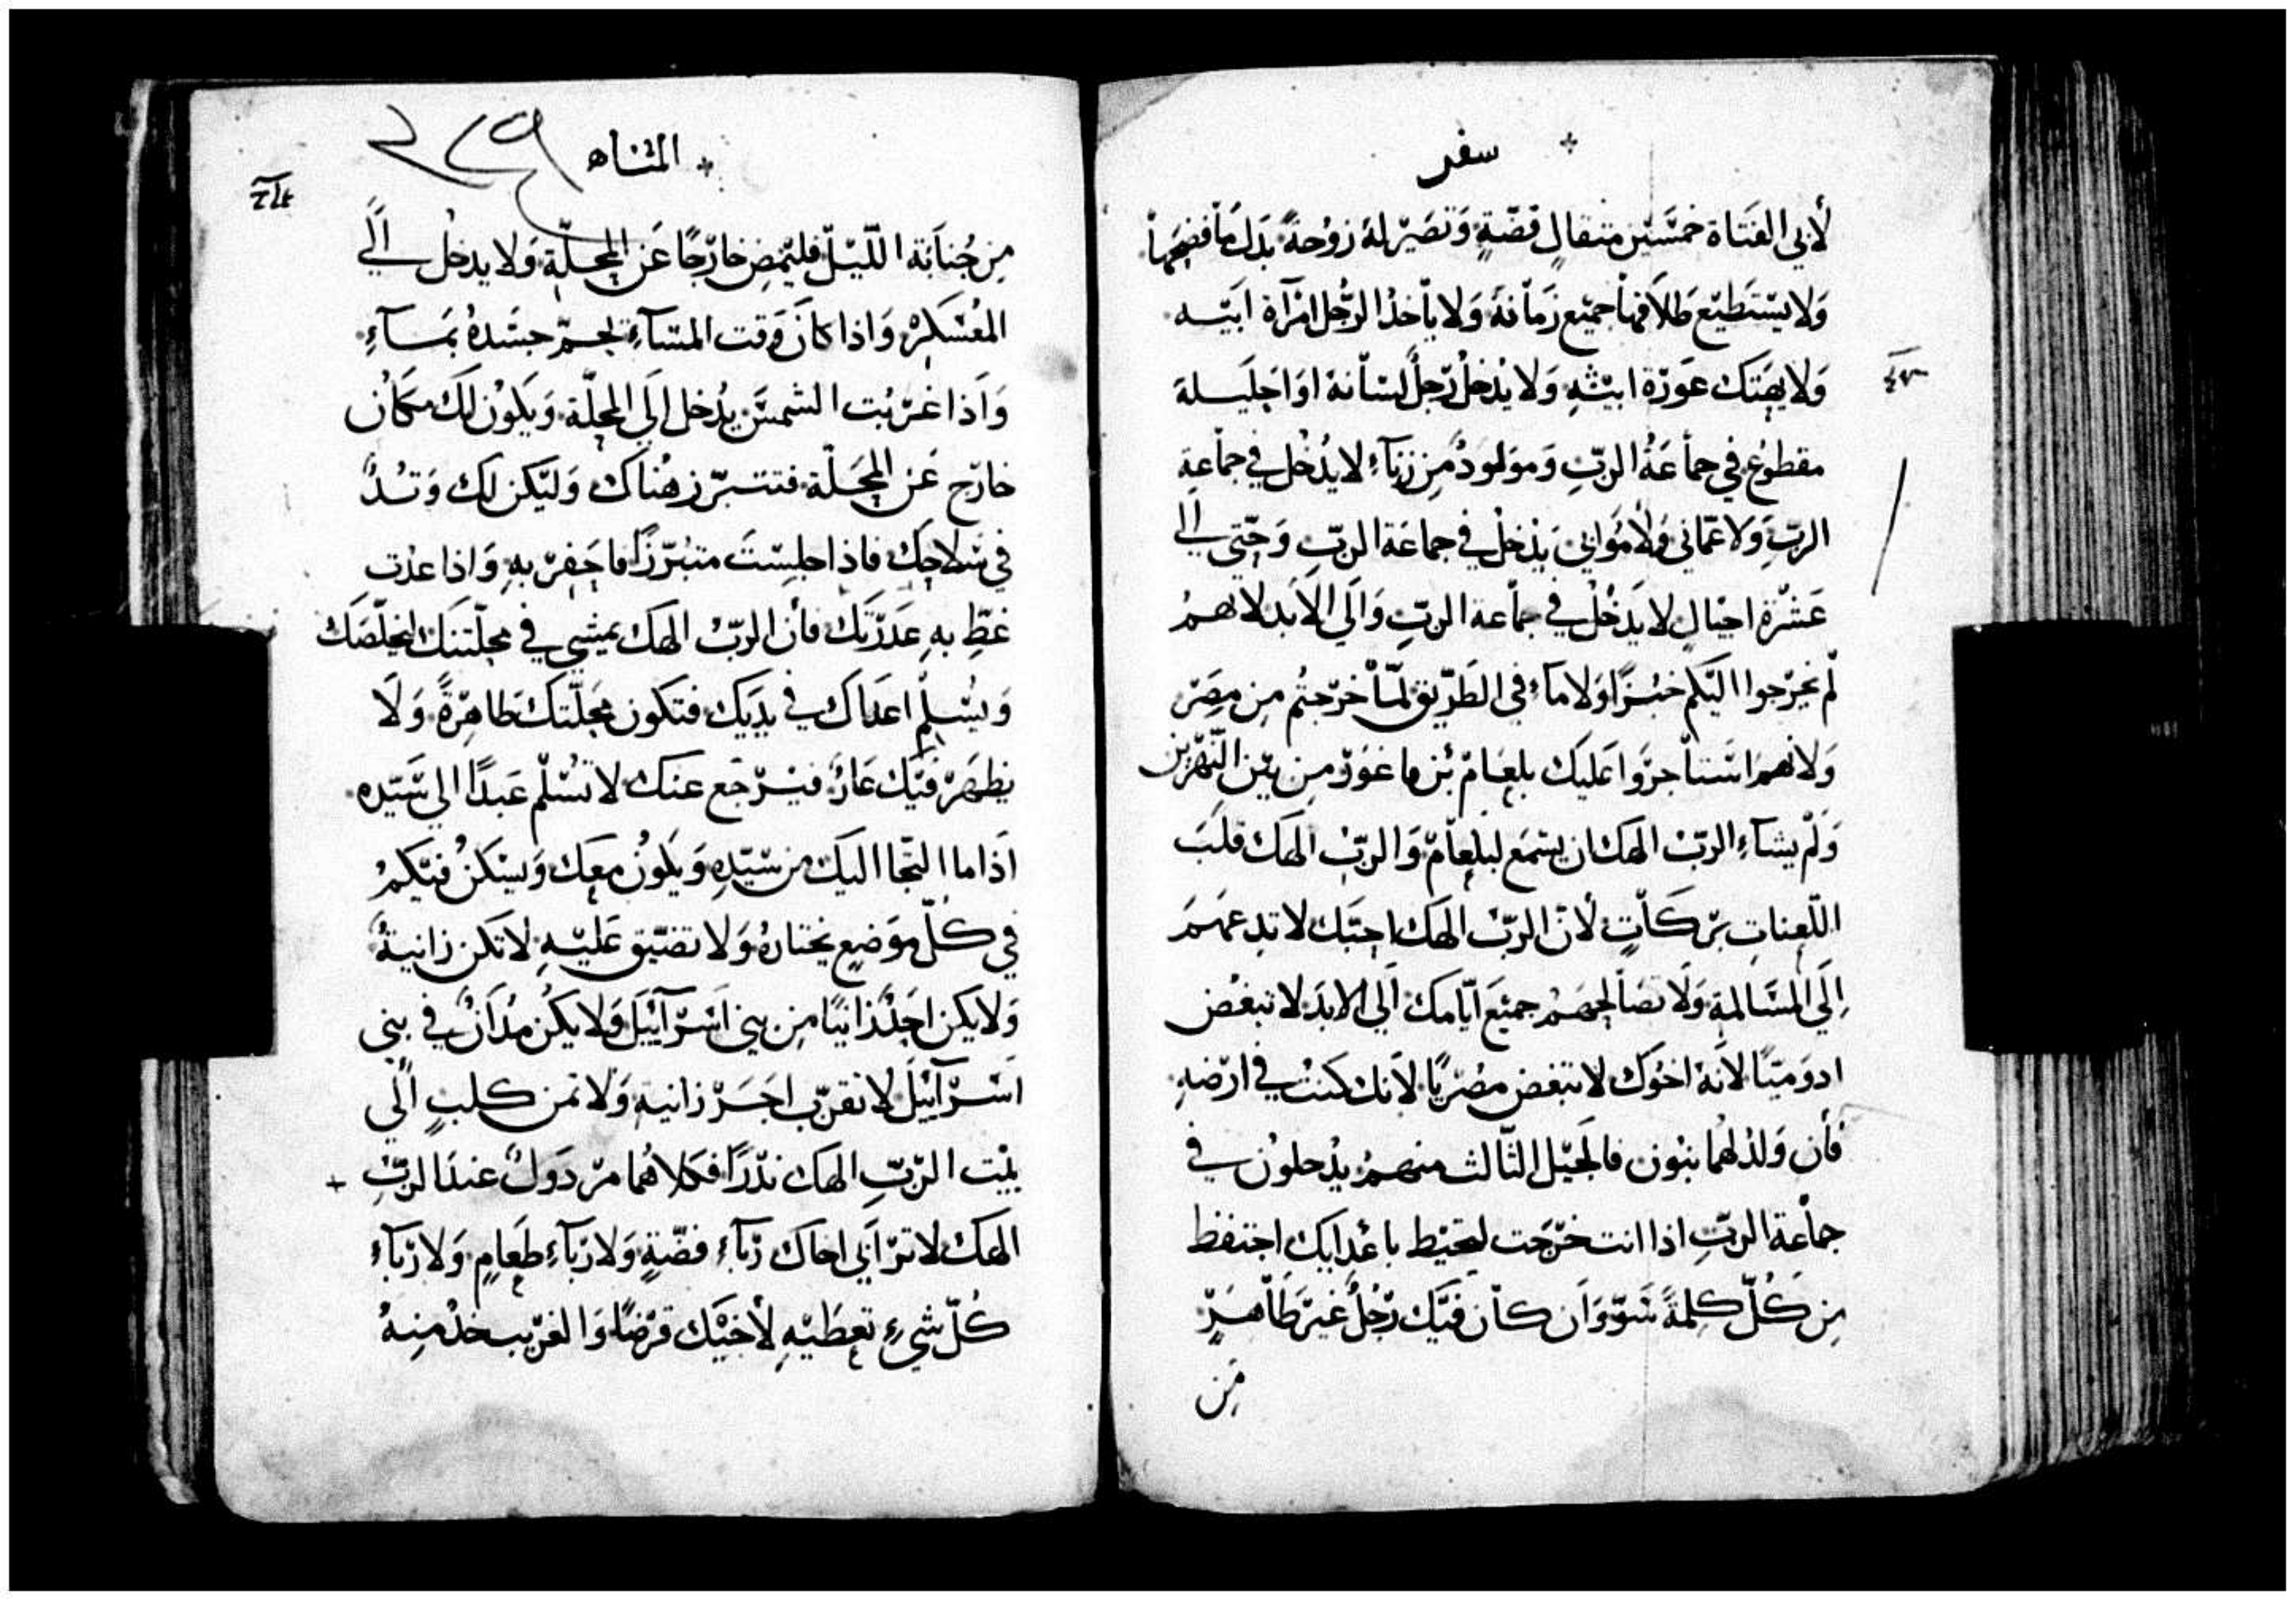 سفر
لأبي الفتاة خمسين مثقال فضّةٍ وتصير له زوجةً بدل ما فضحها
ولا يستطيع طلاقها جميع زمانه ولا يأخذ الرّجل امرآة ابيه
ولا يهتك عورة ابيه ولا يدخل رجلٌ اوا حليله
مقطوع في جماعة الربّ ومولودٌ من زناء لا يدخل في جماعة
الربّ ولا عمّاني ولا موابي يدخل في جماعة الربّ وحتى الي
عشرة اجيالٍ لا يدخل في جماعة الربّ والي الابد لانهم
لم يخرجوا اليكم خبزًا ولا ماء في الطّريق لمّا خرجتم من مصر
ولانهم استأجروا عليك بلعام بن باعور من بين النّهرين
ولم يشاء الربّ الهك ان يسمع لبلعام والربّ الهك قلب
اللّعنات بركاتٍ لأنّ الربّ الهك احبّك لا تدعهم
الي المسالمة ولا تصالحهم جميع ايّامك الي الابد لا تبغض
ادوميًّا لانه اخوك لا تبغض مصريًّا لأنك كنت في ارضه
فأن ولد لهما بنون فالجيل الثّالث منهم يدخلون في
جماعة الربّ اذا انت خرجت لتحيط باعدايك احتفظ
من كلّ كلمةً سوّ وان كان فيك رجلٌ غير طاهرٍ
من
المثناه
من جنابة اللّيل فليمض خارجًا عن المحلّة ولا يدخل الي
المعسكر واذا كان وقت المسآء جسده بمآء
واذا غربت الشمس يدخل الي المحلّة ويكون لك مكان
خارج عن المحلّة فتتبرّز هناك وليكن لك وتدٌ
في سلاحك فاذا جلست متبرّزًا فاحفر به واذا عدت
غطّ به عذرتك فأن الربّ الهك يمشي في محلّتك ليخلّصك
ويسلم اعداك في يديك فتكون محلّتك طاهرةً ولا
يظهر فيك عارٌ فيرجع عنك لا تسلّم عبدًا الي سيّده
اذا ما التجا اليك من سيّده ويكون معك ويسكن فيكم
في كلّ موضعٍ يختاره ولا تضيّق عليه لا تكن زانيةً
ولا يكن احدٌ زانيًا من بني اسرآييل ولا يكن في بني
اسرآييل لا تقرّب اجر زانية ولا ثمن كلبٍ الي
بيت الربّ الهك نذرًا فكلاهما مردولٌ عند الربّ
الهك لا ترآبي اخاك رباء فضّةٍ ولا رباء طعامٍ ولا رباء
كلّ شيءٍ تعطيه لأخيك قرضًا والغريب خذ منه